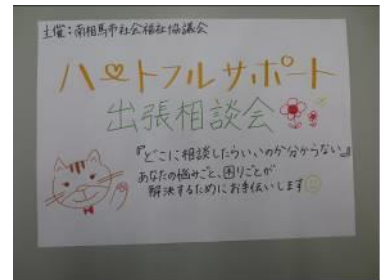 主催：南相馬市社会福祉協議会
ハートフルサポート
出張相談会
『どこに相談したらいいのか分からない』
あなたの悩みごと、困りごとが
解決するためにお手伝いします